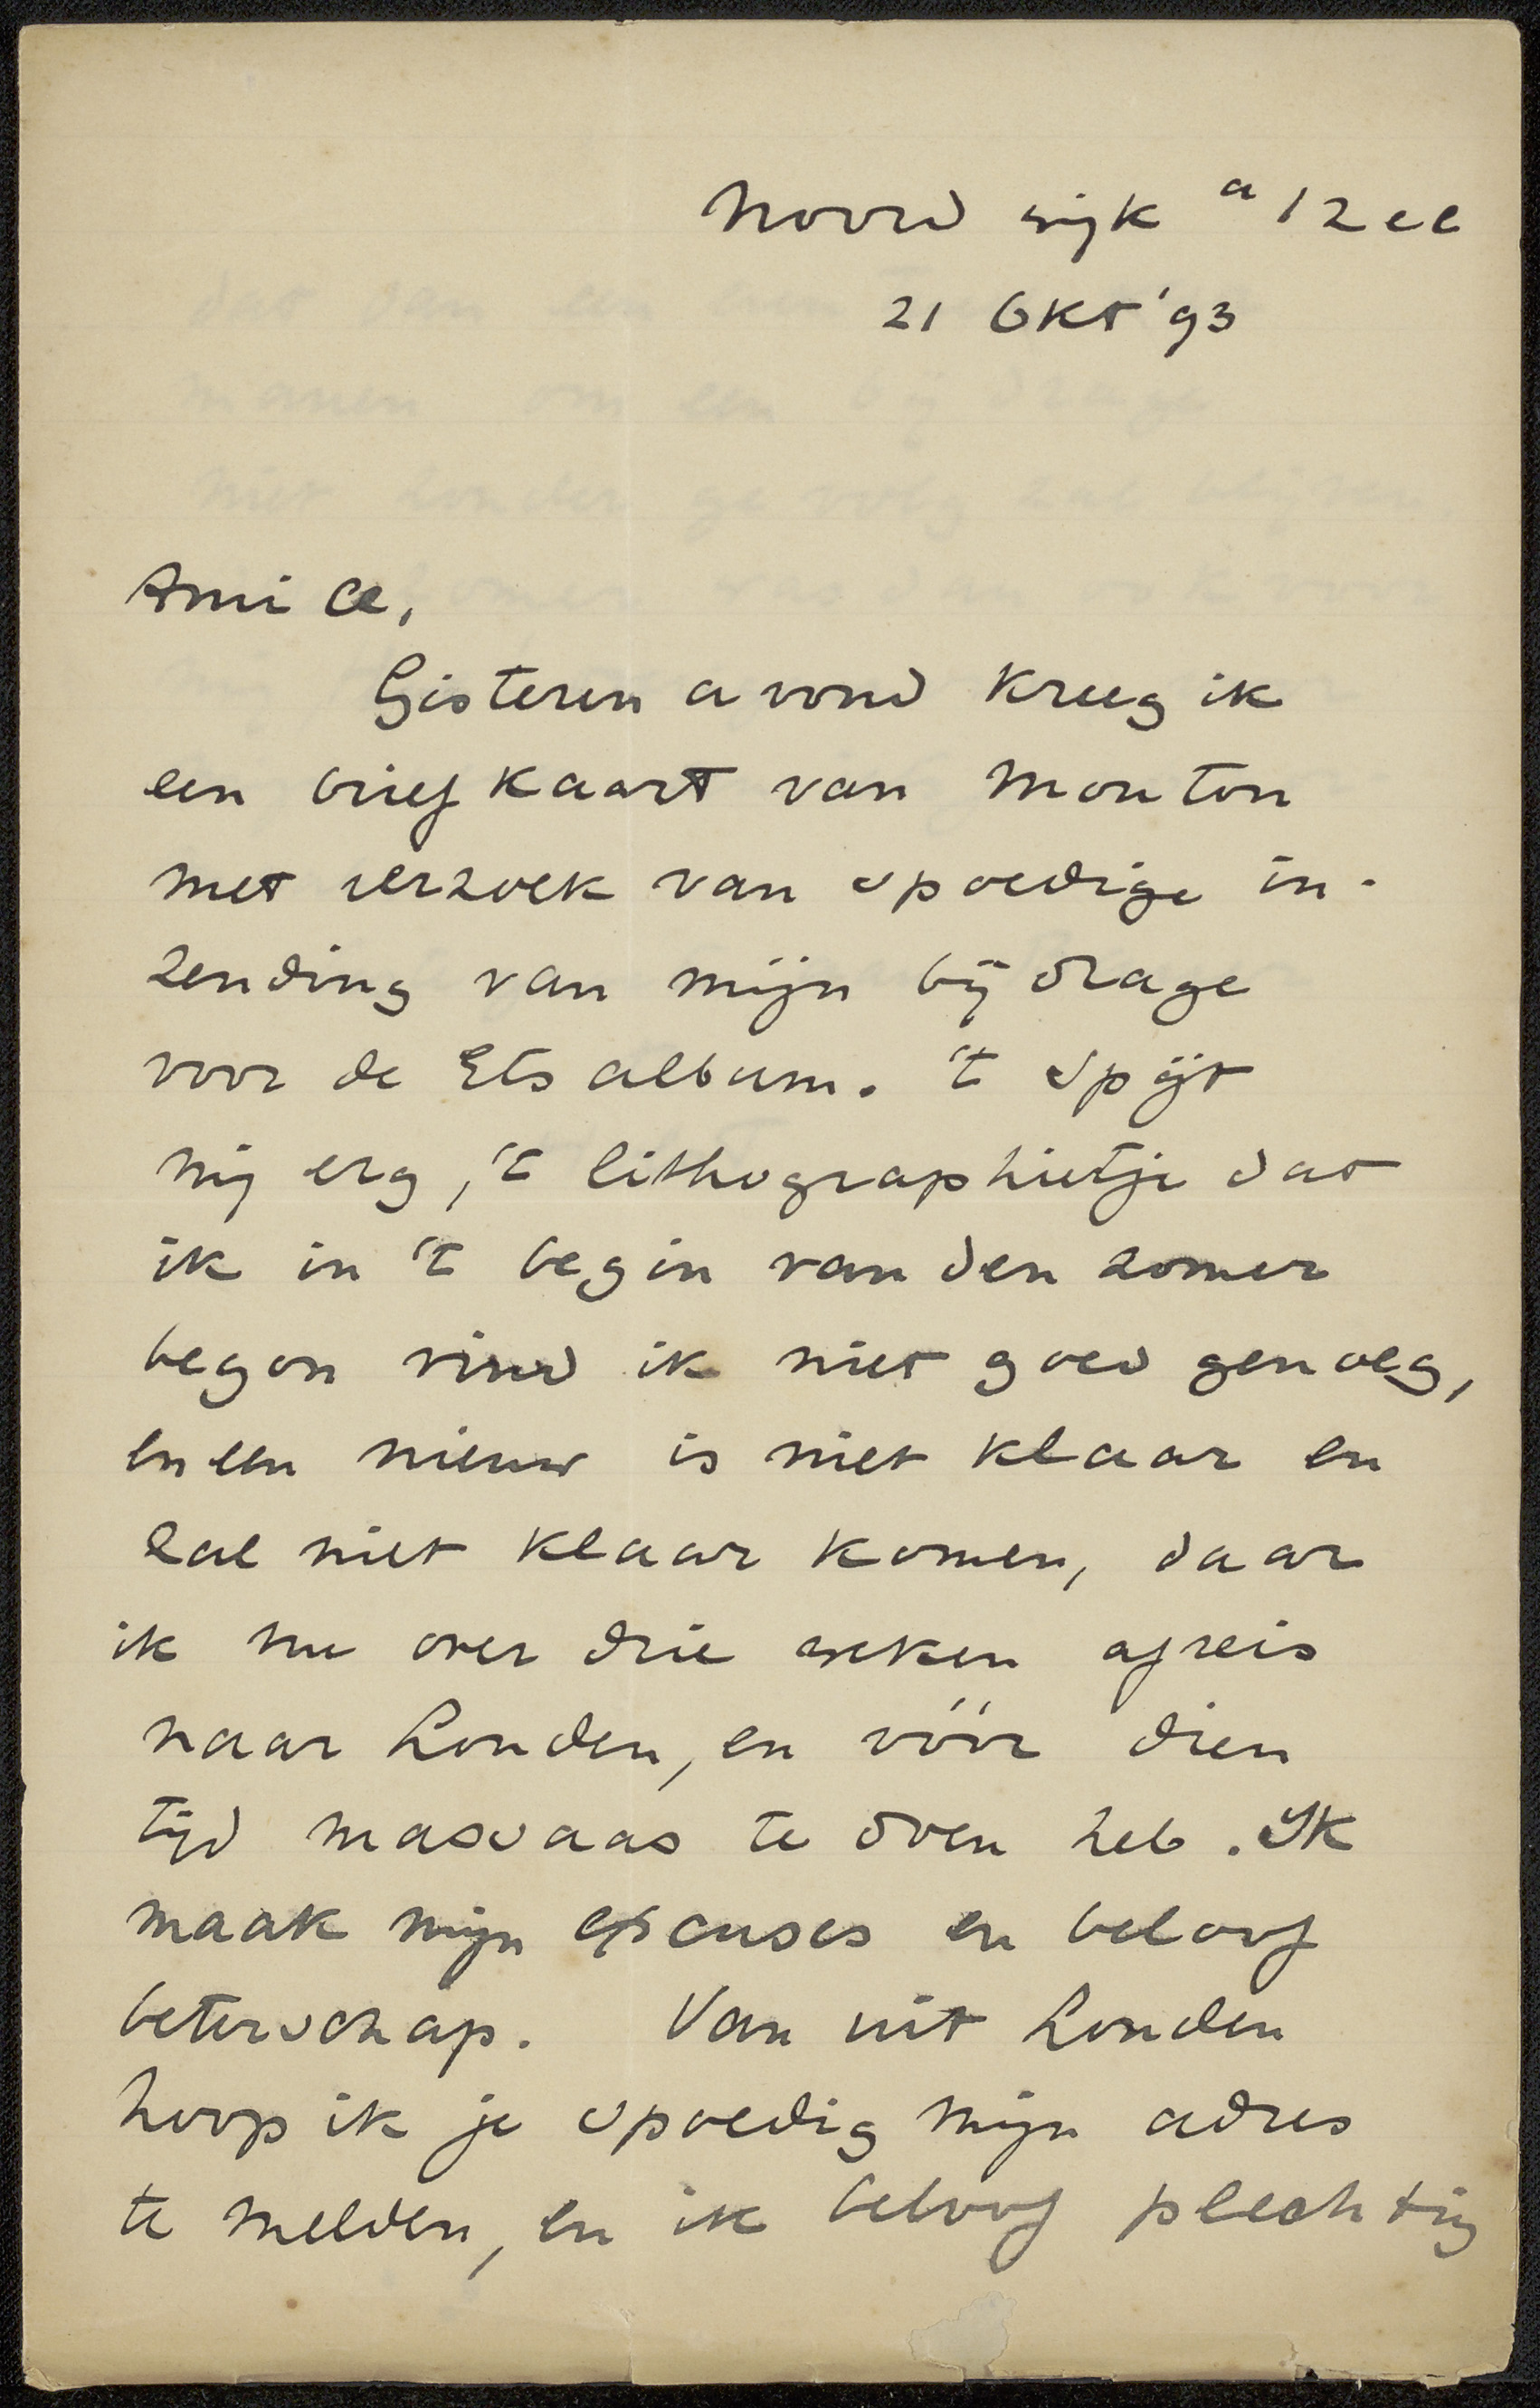 Noordwijk a/Zee
21 Okt '93
Amice,
Gisteren avond kreeg ik
een briefkaart van Mouton
met verzoek van spoedige in-
zending van mijn bijdrage
voor de Etsalbum. 't spijt
mij erg, 't lithographietje dat
ik in 't begin van den zomer
begon vind ik niet goed genoeg,
en een nieuw is niet klaar en
zal niet klaar komen, daar
ik nu over drie weken afreis
naar Londen, en vóór dien
tijd massaas te doen heb. Ik
maak mijn excuses en beloof
beterschap. Van uit Londen
hoop ik je spoedig mijn adres
te melden, en ik beloof plechtig